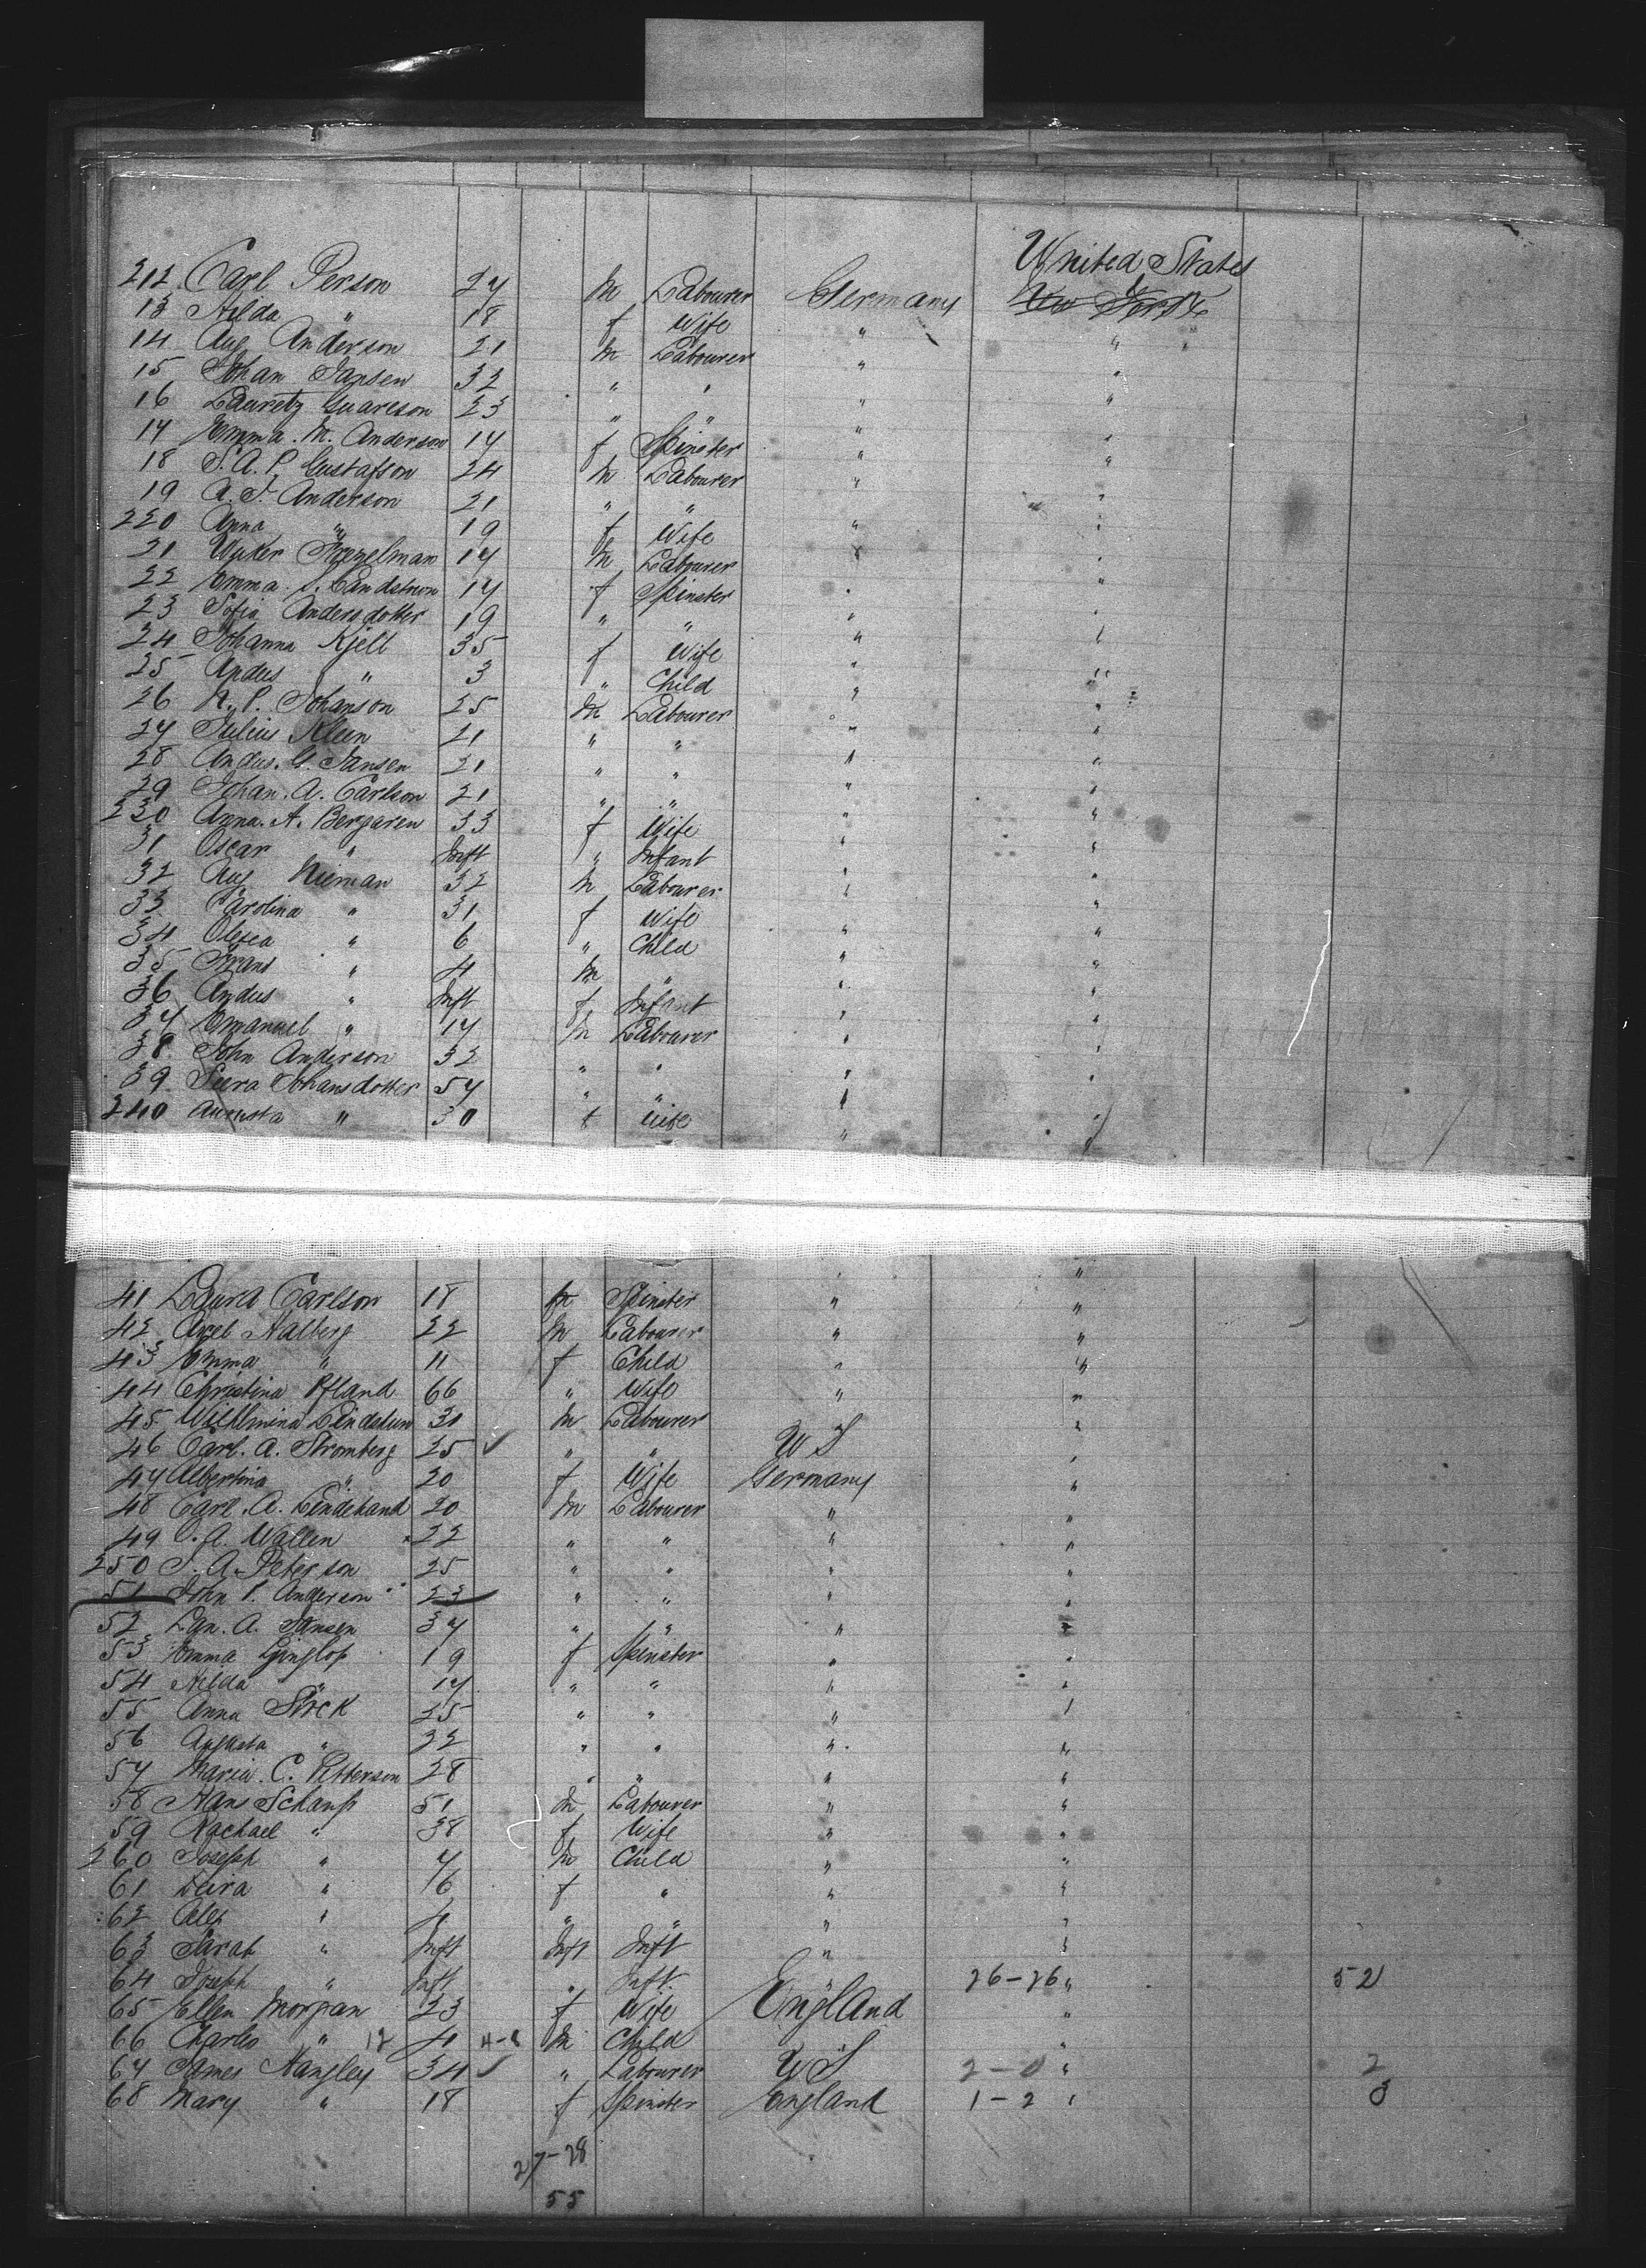 United States
212 Carl Person 27 m Labourer Germany New York
13 Hilda " 18 f Wife " "
14 Aug Anderson 21 m Labourer " "
15 Johan Jansen 32 " " " "
16 Lauretz 23 " " " "
17 Emma. M. Anderson 17 f Spinster " "
18 S. A. P. Gustafson 24 m Labourer " "
19 A. F. Anderson 21 " " "
220 Anna " 19 f Wife " "
21 17 m Labourer " "
22 Emma. S. Landstrom 17 f Spinster " "
23 Sofia Andersdotter 19 " " " "
24 Johanna Kjell 35 f Wife " "
25 Andus " 3 " Child " "
26 N. P. Johanson 25 m Labourer " "
27 Julius Klein 21 " " " "
28 Andus. G. Jansen 21 " " " "
29 Johan. A. Carlson 21 " " " "
230 Anna. A. Bergaren 33 f Wife " "
31 Oscar " Inft " Infant " "
32 Aug Nieman 32 m Labourer " "
33 Carolina " 31 f Wife " "
34 " 6 " Child " "
35 Frans " 4 m " " "
36 Andus " Inft f Infant " "
37 Emanuel " 17 m Labourer " "
38 John Anderson 32 " " " "
39 Johansdotter 57 " " " "
240 Augusta " 30 f Wife " "
41 Laura Carlson 18 Spinster " "
42 Axel Halberg 22 m Labourer " "
43 Emma " 11 f Child " "
44 Christina 66 " Wife " "
45 Wilhlmina 31 m Labourer "
46 Carl. A. Stromberg 25 " " U S "
47 Albertina " 20 f Wife Germany "
48 Carl. A. 20 m Labourer " "
49 Wallen 22 " " " "
250 S. A. Peterson 25 " " " "
51 John P. Anderson 23 " " " "
52 A. Jansen 37 " " " "
53 Emma 19 f Spinster " "
54 Hilda " 17 " " " "
55 Anna 25 " " " "
56 Augusta " 22 " " " "
57 Maria. C. Petterson 28 " " " "
58 Hans 51 m Labourer " "
59 Rachael " 38 f Wife " "
260 Joseph " 7 m Child " "
61 " 6 f " " "
62 Alex " 4 " " " "
63 Sarah " Inft Inft Inft " "
64 Joseph " Inft " Inft. " 26-26 " 52
65 Ellen Morgan 23 f Wife England "
66 Charles " 12 4 m Child "
67 James Hangley 34 " Labourer U S 2-0 " 2
68 Mary " 18 f Spinster England 1-2 " 3
27-28
55